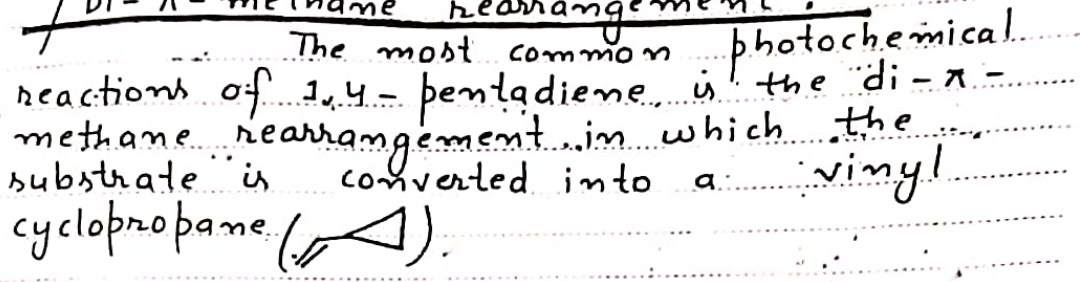 Di-π-methane rearrangement.
The most common photochemical
reactions of 1,4-pentadiene, is the di-π-
methane rearrangement in which the
substrate is converted into a vinyl
cyclopropane ( ).